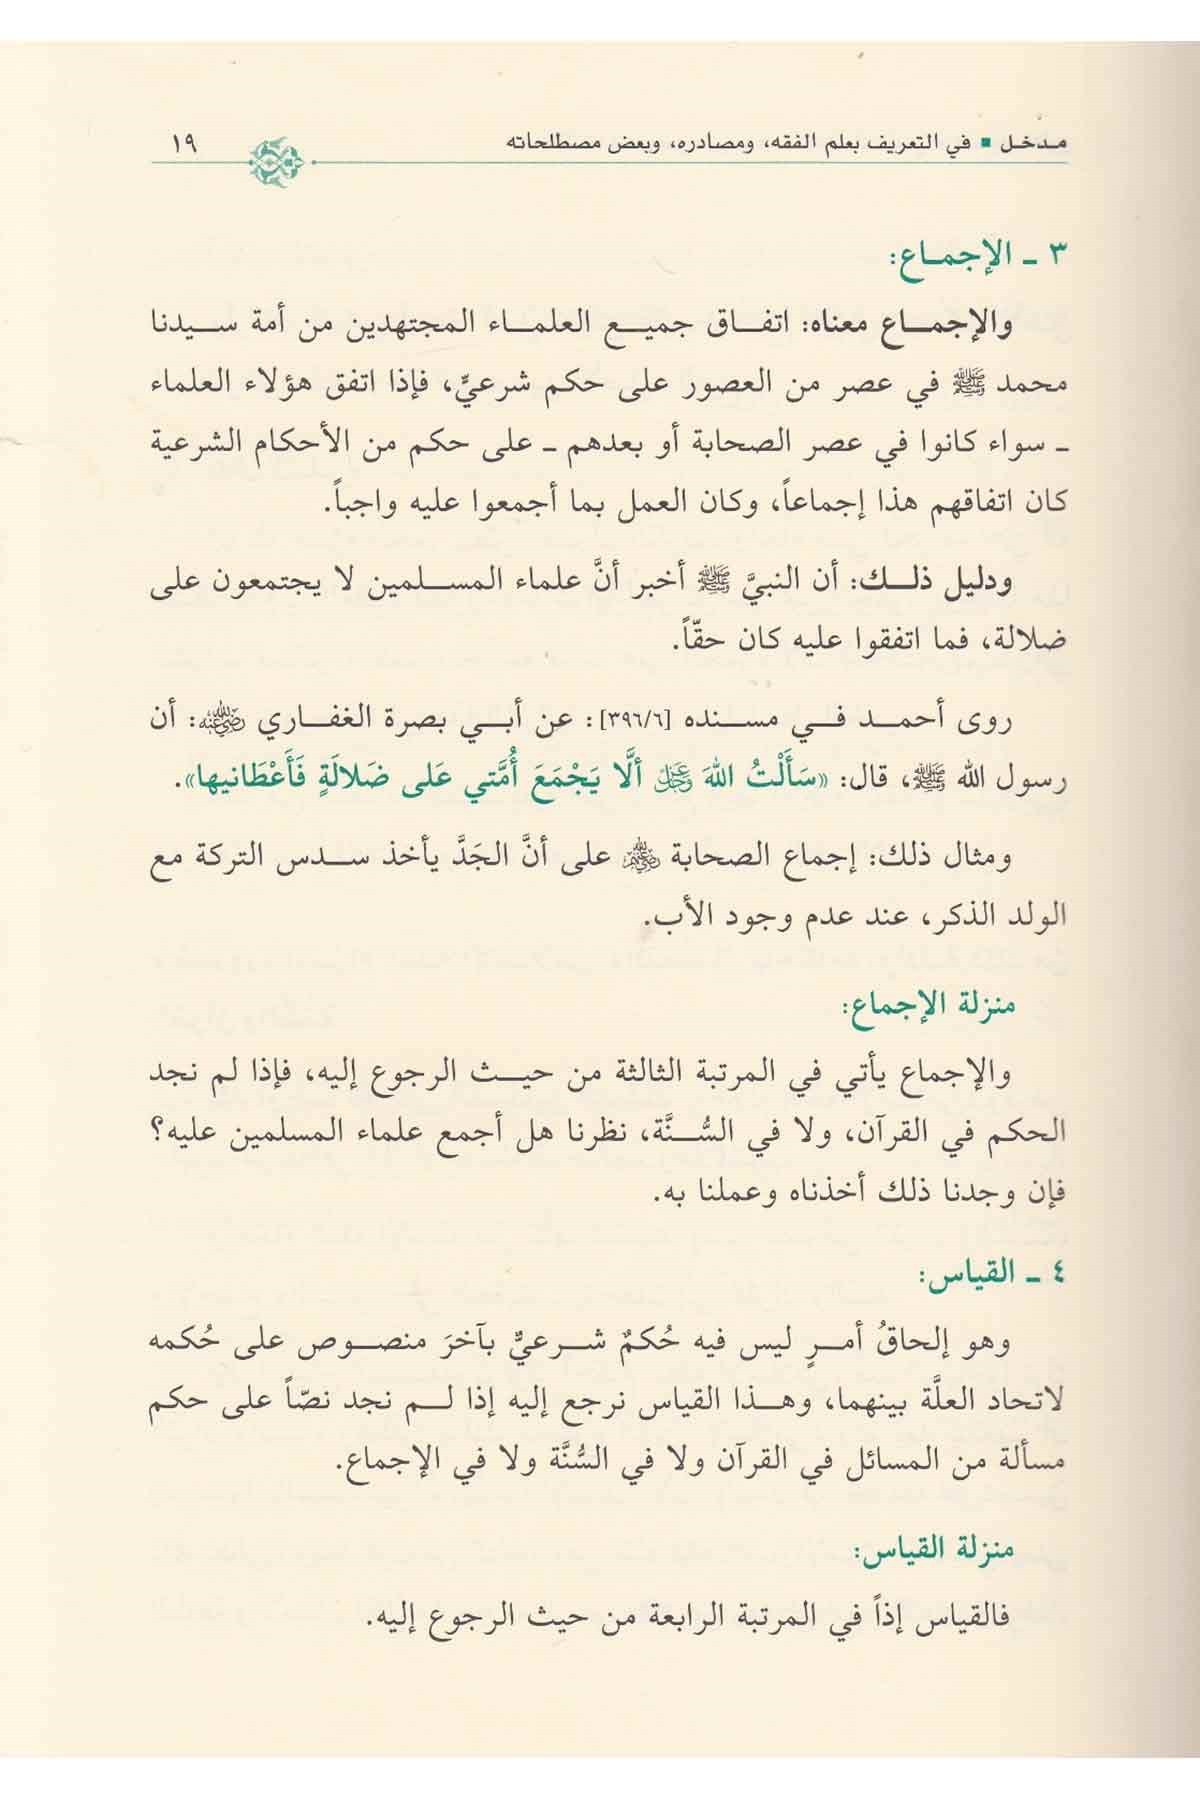 مدخل ■ في التعريف بعلم الفقه، ومصادره، وبعض مصطلحاته ١٩
٣ ـ الإجماع:
والإجماع معناه: اتفاق جميع العلماء المجتهدين من أمة سيدنا
محمد ﷺ في عصر من العصور على حكم شرعيٍّ، فإذا اتفق هؤلاء العلماء
ـ سواء كانوا في عصر الصحابة أو بعدهم ـ على حكم من الأحكام الشرعية
كان اتفاقهم هذا إجماعاً، وكان العمل بما أجمعوا عليه واجباً.
ودليل ذلك: أن النبيَّ ﷺ أخبر أنَّ علماء المسلمين لا يجتمعون على
ضلالة، فما اتفقوا عليه كان حقّاً.
روى أحمد في مسنده [٣٩٦/٦]: عن أبي بصرة الغفاري رضي الله عنه: أن
رسول الله ﷺ، قال: «سَأَلْتُ اللهَ عز وجل ألَّا يَجْمَعَ أُمَّتي عَلى ضَلالَةٍ فَأَعْطَانيها».
ومثال ذلك: إجماع الصحابة رضي الله عنهم على أنَّ الجَدَّ يأخذ سدس التركة مع
الولد الذكر، عند عدم وجود الأب.
منزلة الإجماع:
والإجماع يأتي في المرتبة الثالثة من حيث الرجوع إليه، فإذا لم نجد
الحكم في القرآن، ولا في السُّنَّة، نظرنا هل أجمع علماء المسلمين عليه؟
فإن وجدنا ذلك أخذناه وعملنا به.
٤ ـ القياس:
وهو إلحاقُ أمرٍ ليس فيه حُكمٌ شرعيٌّ بآخرَ منصوص على حُكمه
لاتحاد العلَّة بينهما، وهذا القياس نرجع إليه إذا لم نجد نصّاً على حكم
مسألة من المسائل في القرآن ولا في السُّنَّة ولا في الإجماع.
منزلة القياس:
فالقياس إذاً في المرتبة الرابعة من حيث الرجوع إليه.